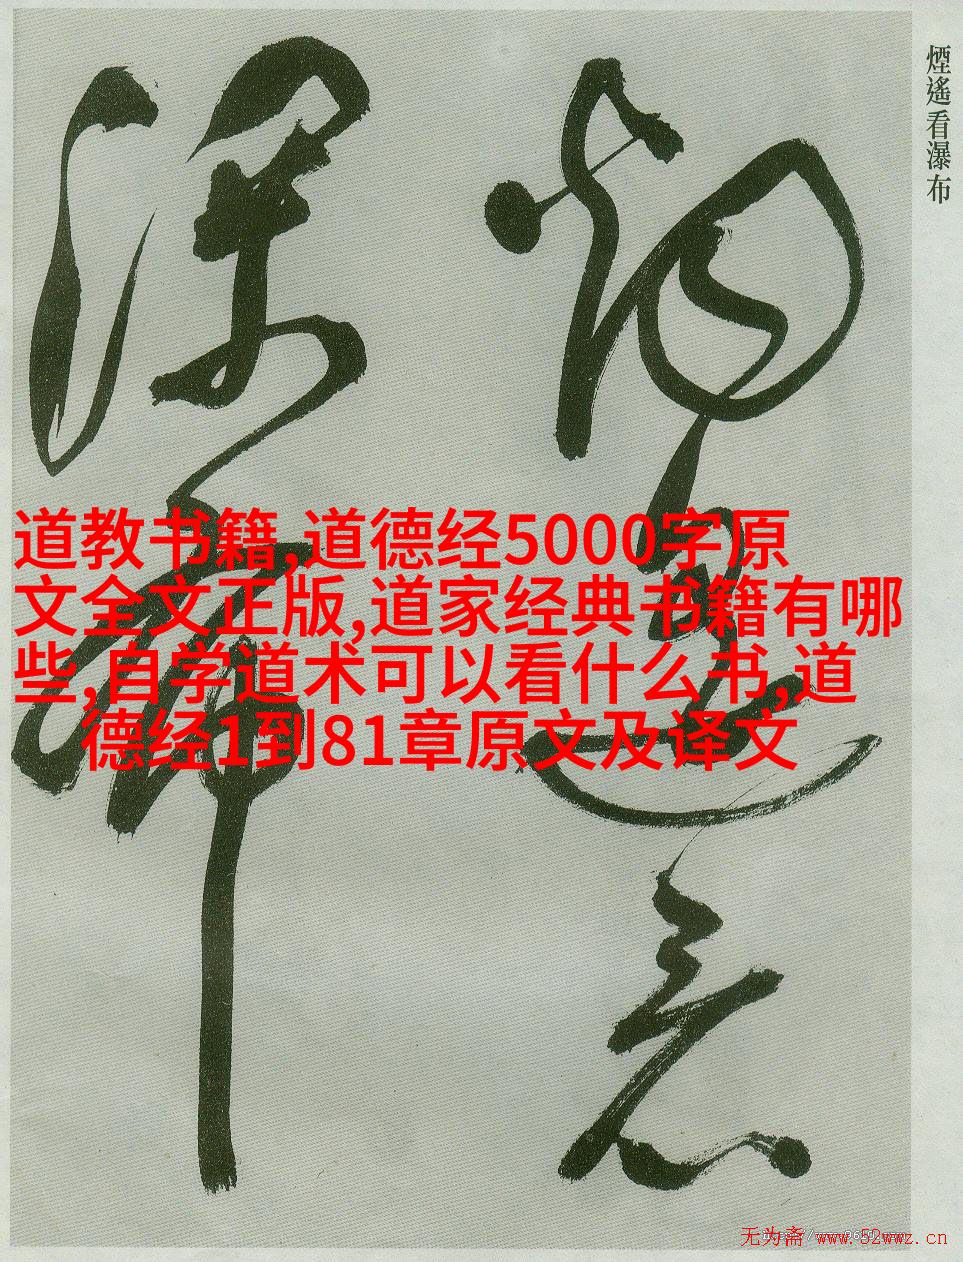 煙遙看瀑布
煙遙看
瀑布
道教书籍,道德经5000字原
文全文正版,道家经典书籍有哪
些,自学道术可以看什么书,道
德经1到81章原文及译文
无为斋 www.52wwz.cn